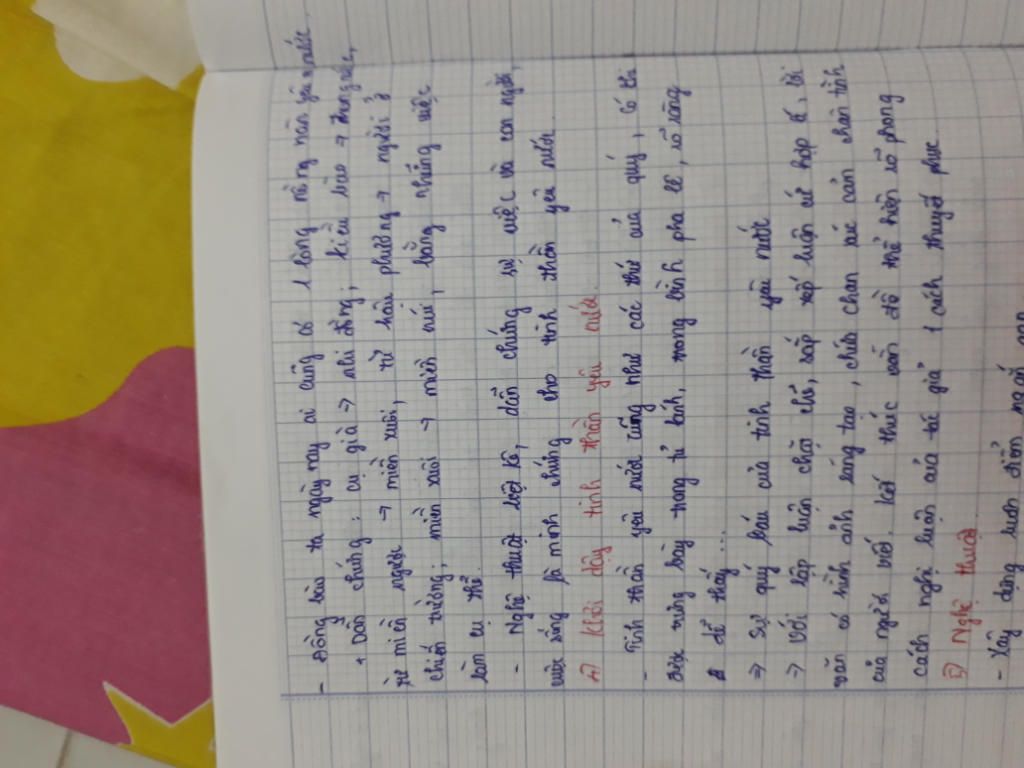 - Đồng bào ta ngày nay ai cũng có 1 lòng nồng nàn yêu nước.
+ Dẫn chứng: cụ già → nhi đồng; kiều bào → trong nước,
từ miền ngược → miền xuôi, từ hậu phương → người ở
chiến trường; miền xuôi → miền núi, bằng những việc
làm cụ thể.
- Nghệ thuật liệt kê, dẫn chứng sự việc và con người,
cuộc sống là minh chứng cho tinh thần yêu nước.
4) Khơi dậy tinh thần yêu nước.
- Tinh thần yêu nước cũng như các thứ của quý, có thi
được trưng bày trong tủ kính, trong bình pha lê, rõ ràng
dễ thấy...
⇒ Sự quý báu của tinh thần yêu nước
→ Với lập luận chặt chẽ, sắp xếp luận cứ hợp lí, lời
văn có hình ảnh sáng tạo, chứa chan xúc cảm chân tình
của người viết. Kết thúc vấn đề thể hiện rõ phong
cách nghị luận của tác giả 1 cách thuyết phục.
5) Nghệ thuật.
- Xây dựng luận điểm ngắn gọn